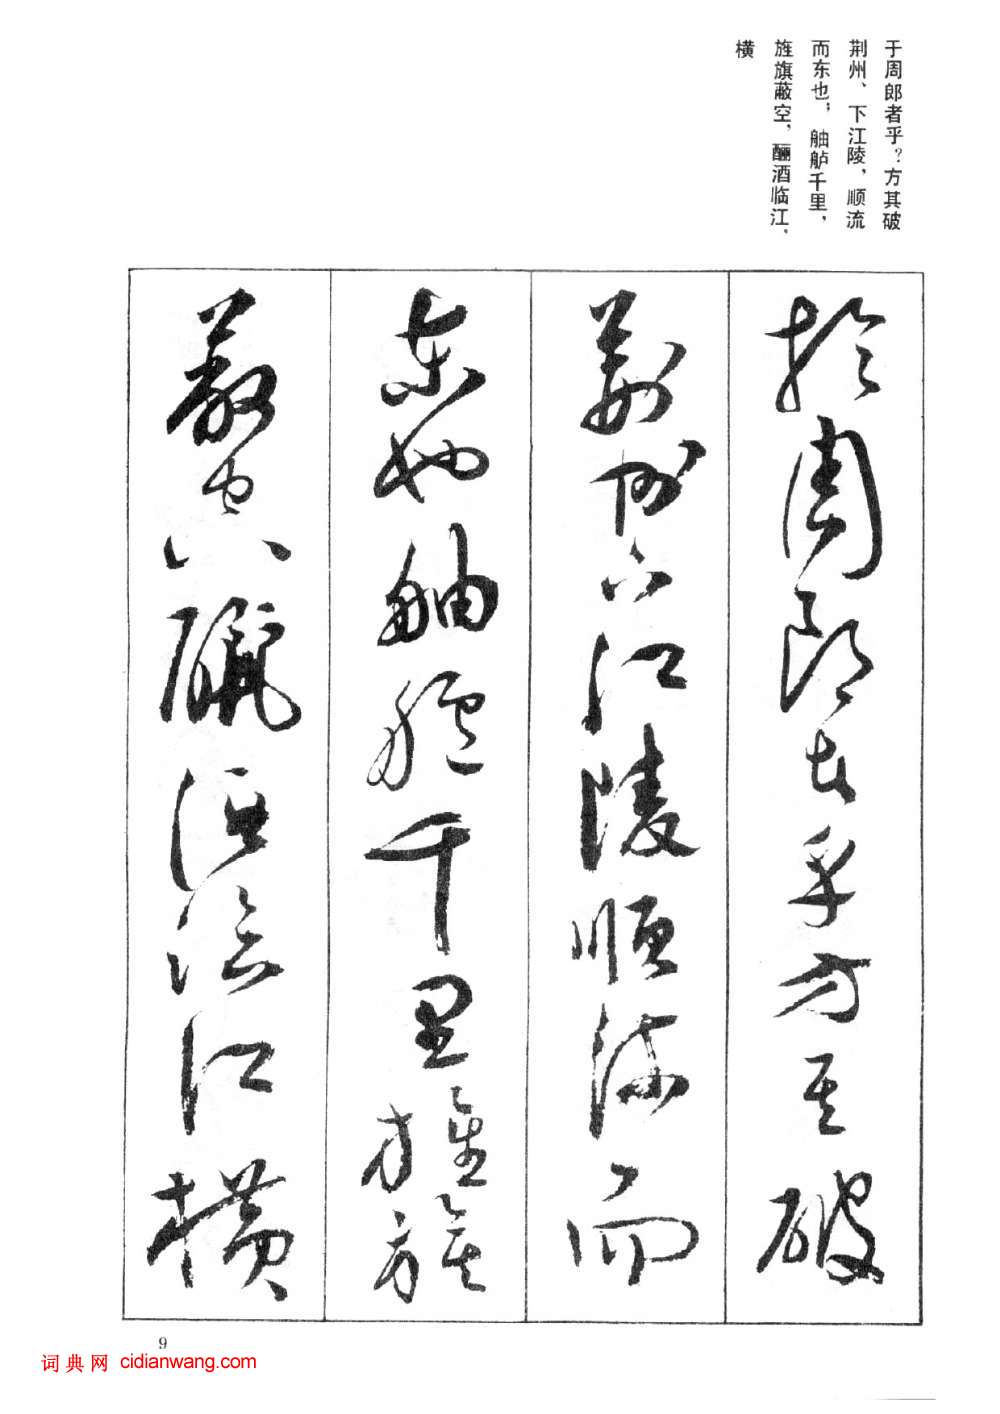 于周郎者乎？方其破
荆州、下江陵，顺流
而东也，舳舻千里，
旌旗蔽空，酾酒临江，
横
於周郎者乎方其破
荆州下江陵顺流而
东也舳舻千里旌旗
蔽空酾酒临江横
9
词典网 cidianwang.com